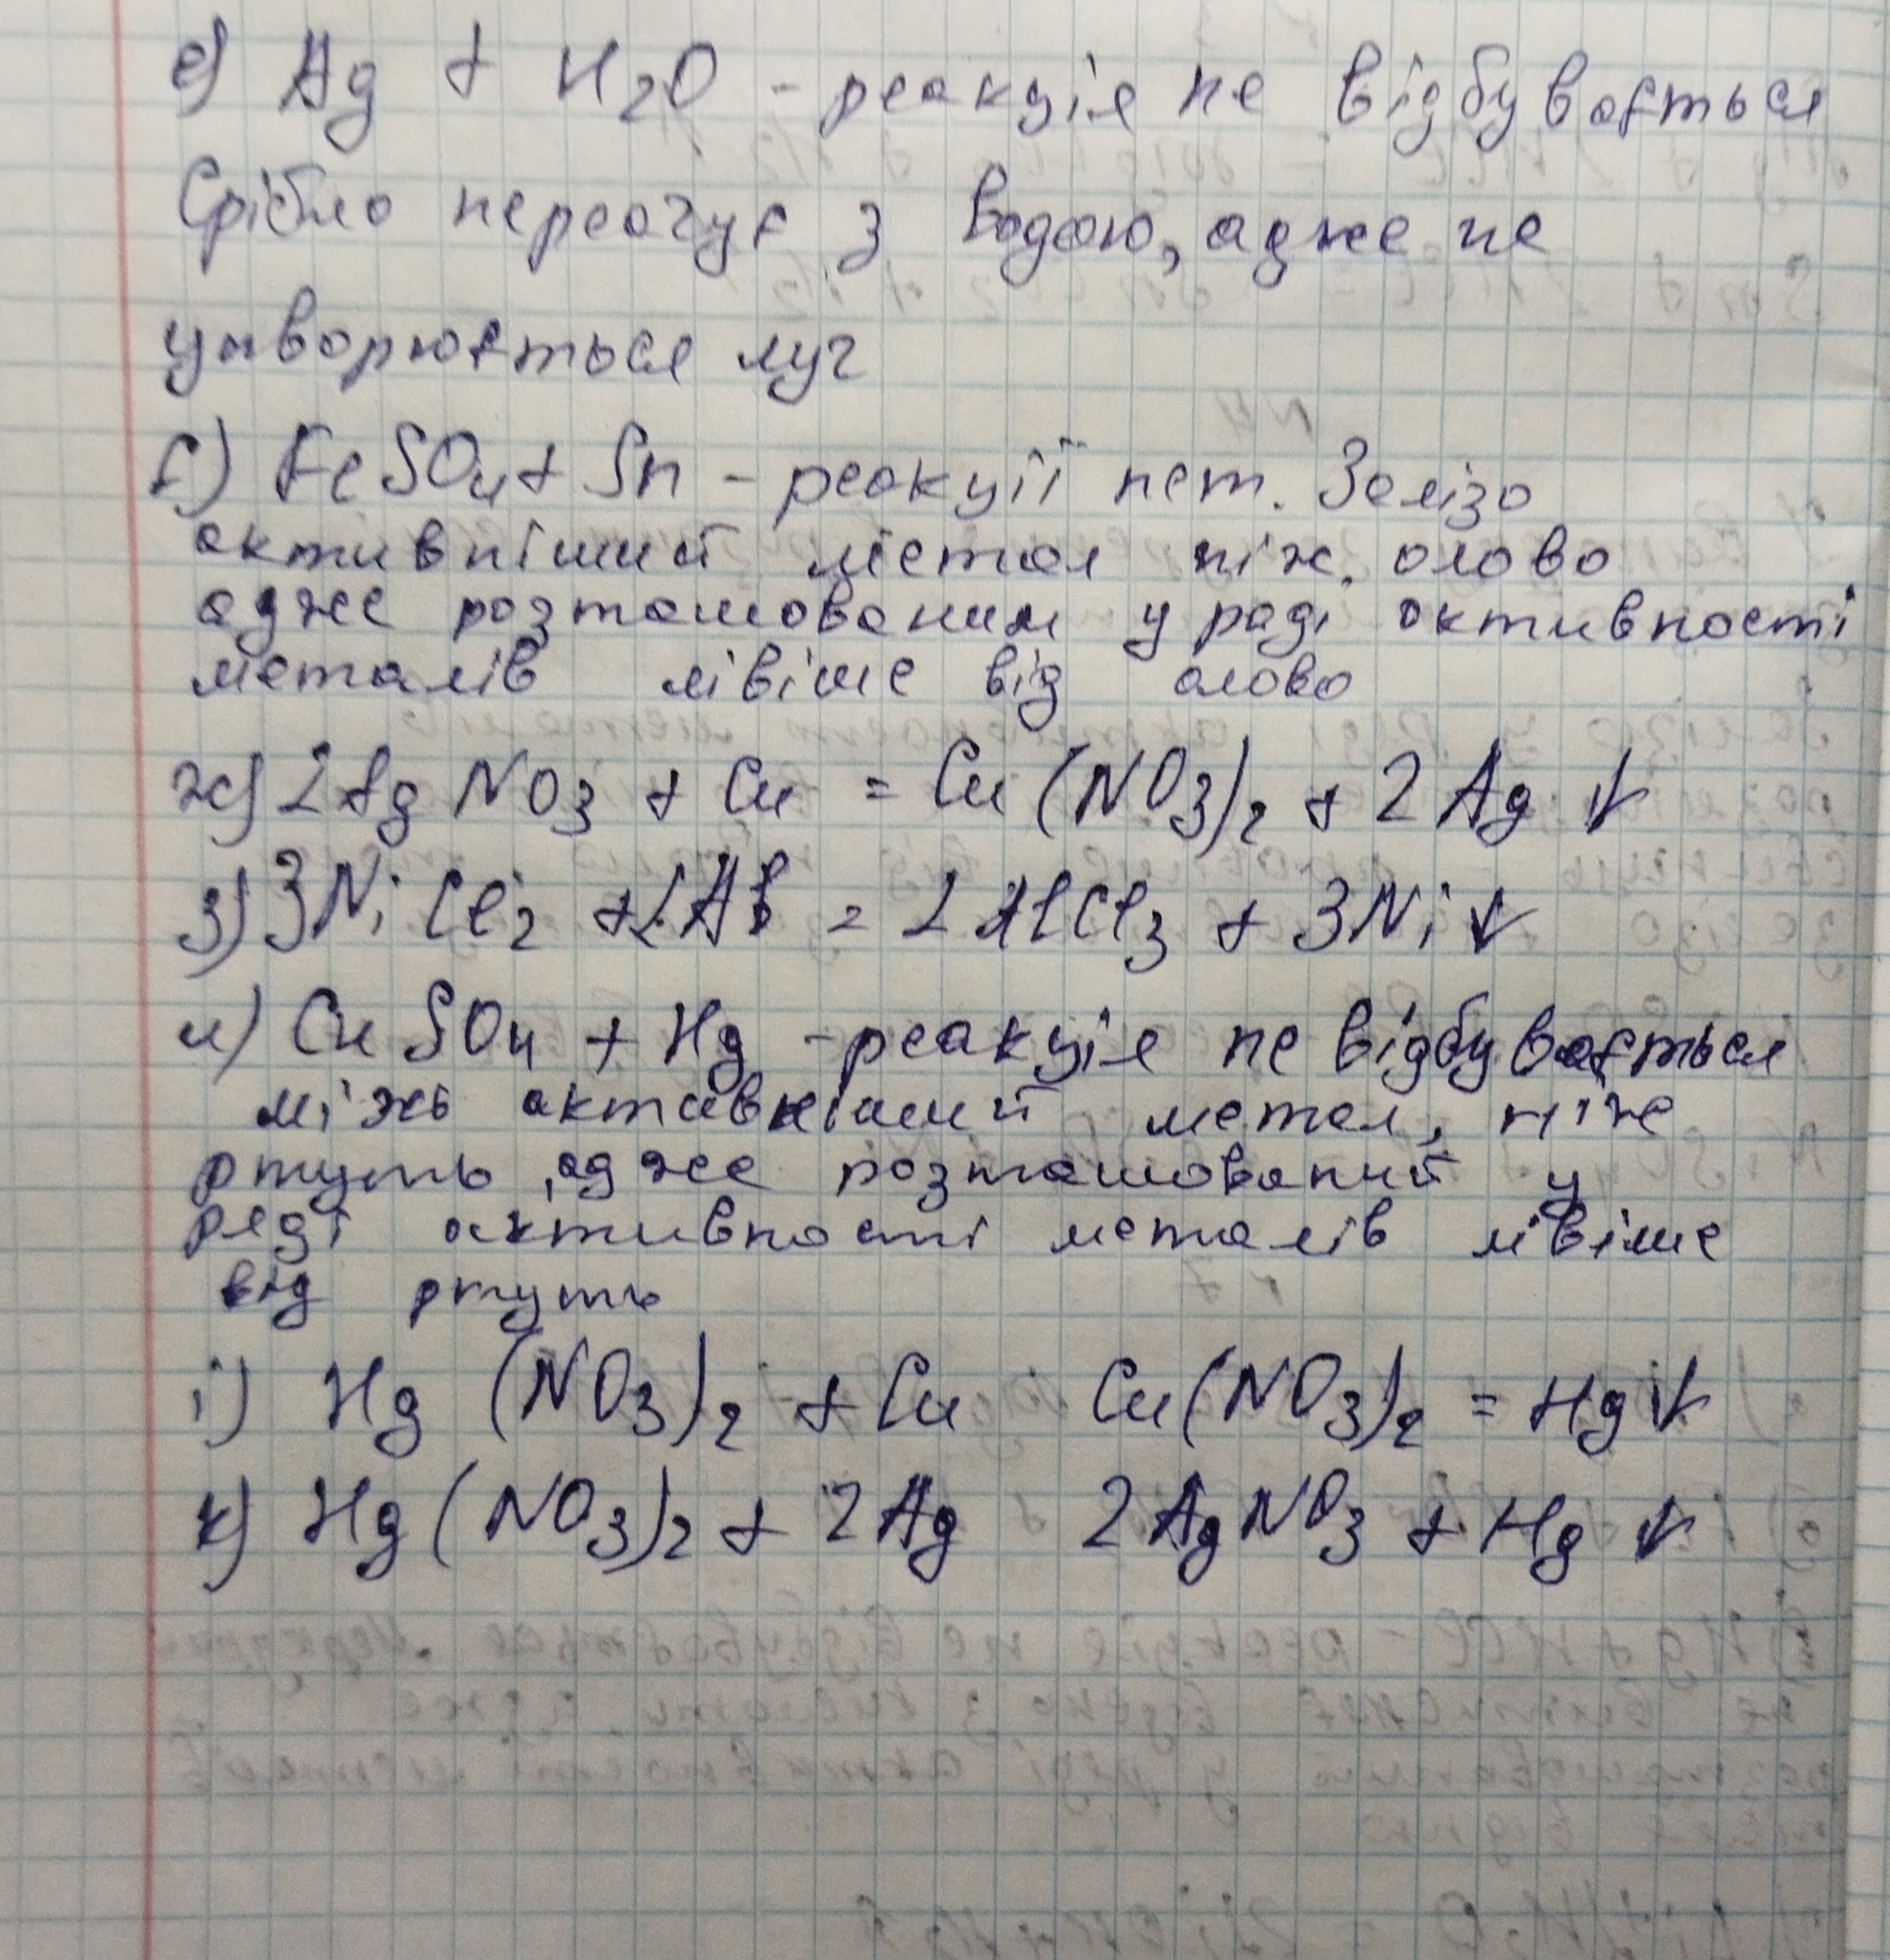 е) Ag + H2O - реакція не відбувається
Срібло нереагує з водою, адже не
утворюється луг
є) FeSO4 + Sn - реакції нет. Залізо
активніший метал ніж олово
адже розташованим у раді активності
металів лівіше від олово
ж) 2AgNO3 + Cu = Cu(NO3)2 + 2Ag ↓
з) 3NiCl2 + 2Al = 2AlCl3 + 3Ni ↓
и) CuSO4 + Hg - реакція не відбувається
міжь активніший метал, ніже
ртуть, адже розташований у
реді активності металів лівіше
від ртуть
і) Hg(NO3)2 + Cu Cu(NO3)2 = Hg ↓
к) Hg(NO3)2 + 2Ag 2AgNO3 + Hg ↓